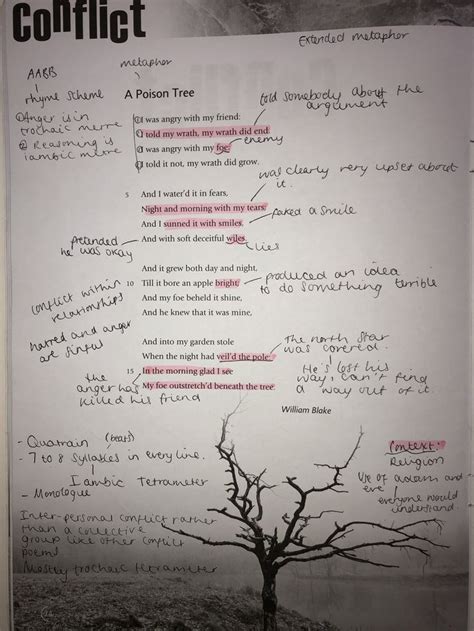 Conflict
Extended metaphor
AABB
rhyme scheme
metaphor
A Poison Tree
① Anger is in
trochaic metre
② Reasoning is
iambic metre
told somebody about the
argument
I was angry with my friend:
I told my wrath, my wrath did end.
I was angry with my foe:
enemy
I told it not, my wrath did grow.
was clearly very upset about
it.
5 And I water'd it in fears,
Night and morning with my tears;
And I sunned it with smiles,
faked a smile
And with soft deceitful wiles.
lies
pretended
he was okay
And it grew both day and night,
10 Till it bore an apple bright;
produced an idea
to do something terrible
And my foe beheld it shine,
And he knew that it was mine,
conflict within
relationships
hatred and anger
are sinful
And into my garden stole
When the night had veil'd the pole:
The north star
was covered.
15 In the morning glad I see
My foe outstretch'd beneath the tree.
He's lost his
way, can't find
a way out of it
the
anger has
killed his friend
William Blake
- Quatrain (beats)
- 7 to 8 syllables in every line.
Iambic Tetrameter
- Monologue
Inter-personal conflict rather
than a collective
group like other conflict
poems
Mostly trochaic tetrameter
Context:
Religion
Use of adam and
eve
everyone would
understand